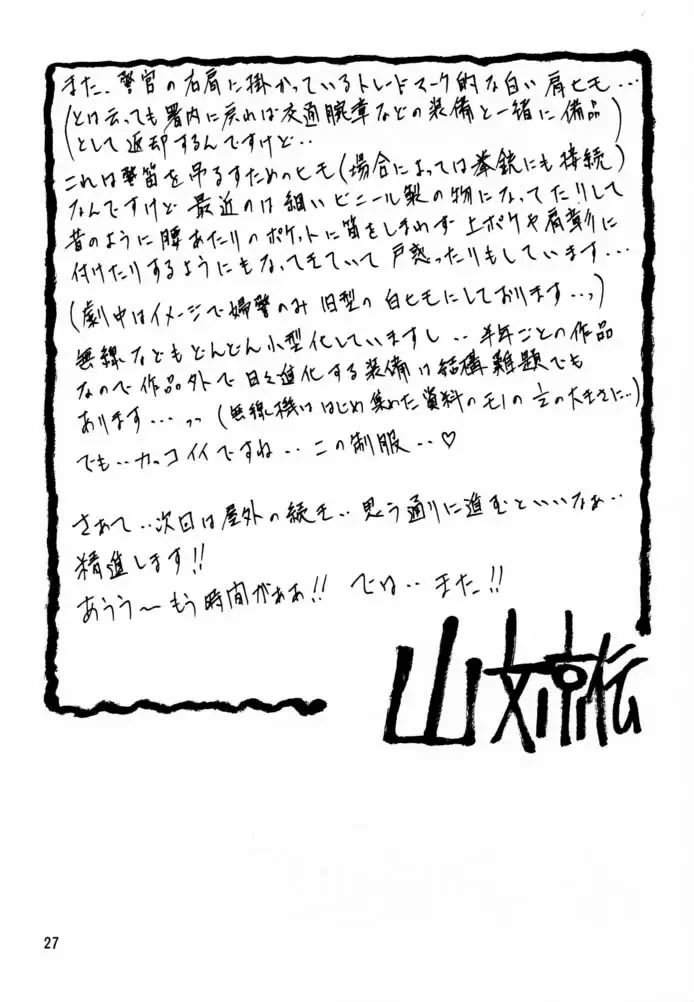 また、警官の右肩に掛かっているトレードマーク的な白い肩ヒモ…
(とは云っても署内に戻れば交通腕章などの装備と一緒に備品
として返却するんですけど…)
これは警笛を吊るすためのヒモ(場合によっては拳銃にも接続)
なんですけど最近のは細いビニール製の物になってたりして
昔のように腰あたりのポケットに笛をしまわず上ポケや肩章に
付けたりするようにもなってきていて戸惑ったりもしています…
(劇中はイメージで婦警のみ旧型の白ヒモにしております…っ)
無線などもどんどん小型化していますし‥半年ごとの作品
なので作品外で日々進化する装備は結構難題でも
あります…っっ(無線機ははじめ集めた資料のモノの½の大きさに‥)
でも‥カッコイイですね‥この制服‥♡
さあて‥次回は屋外の続き‥思う通りに進むといいなぁ‥
精進します!!
あうう～もう時間がぁぁ!! では‥また!!
山文京伝
27